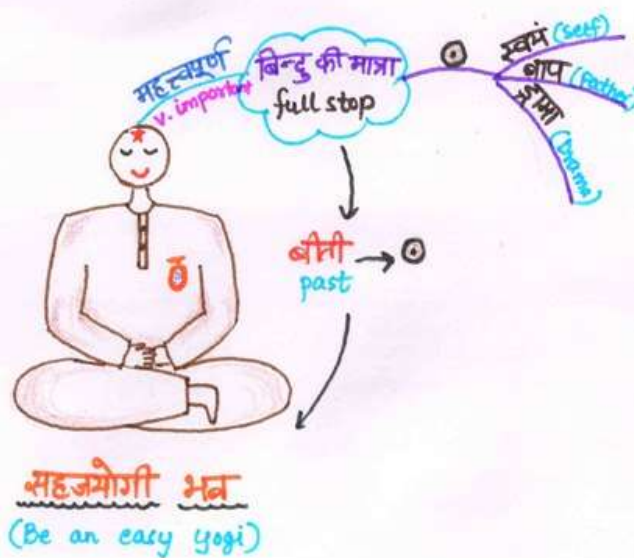 महत्त्वपूर्ण
v. important
बिन्दु की मात्रा
full stop
स्वमं (self)
बाप (Father)
ड्रामा (Drama)
बीती
past
सहजयोगी भव
(Be an easy yogi)